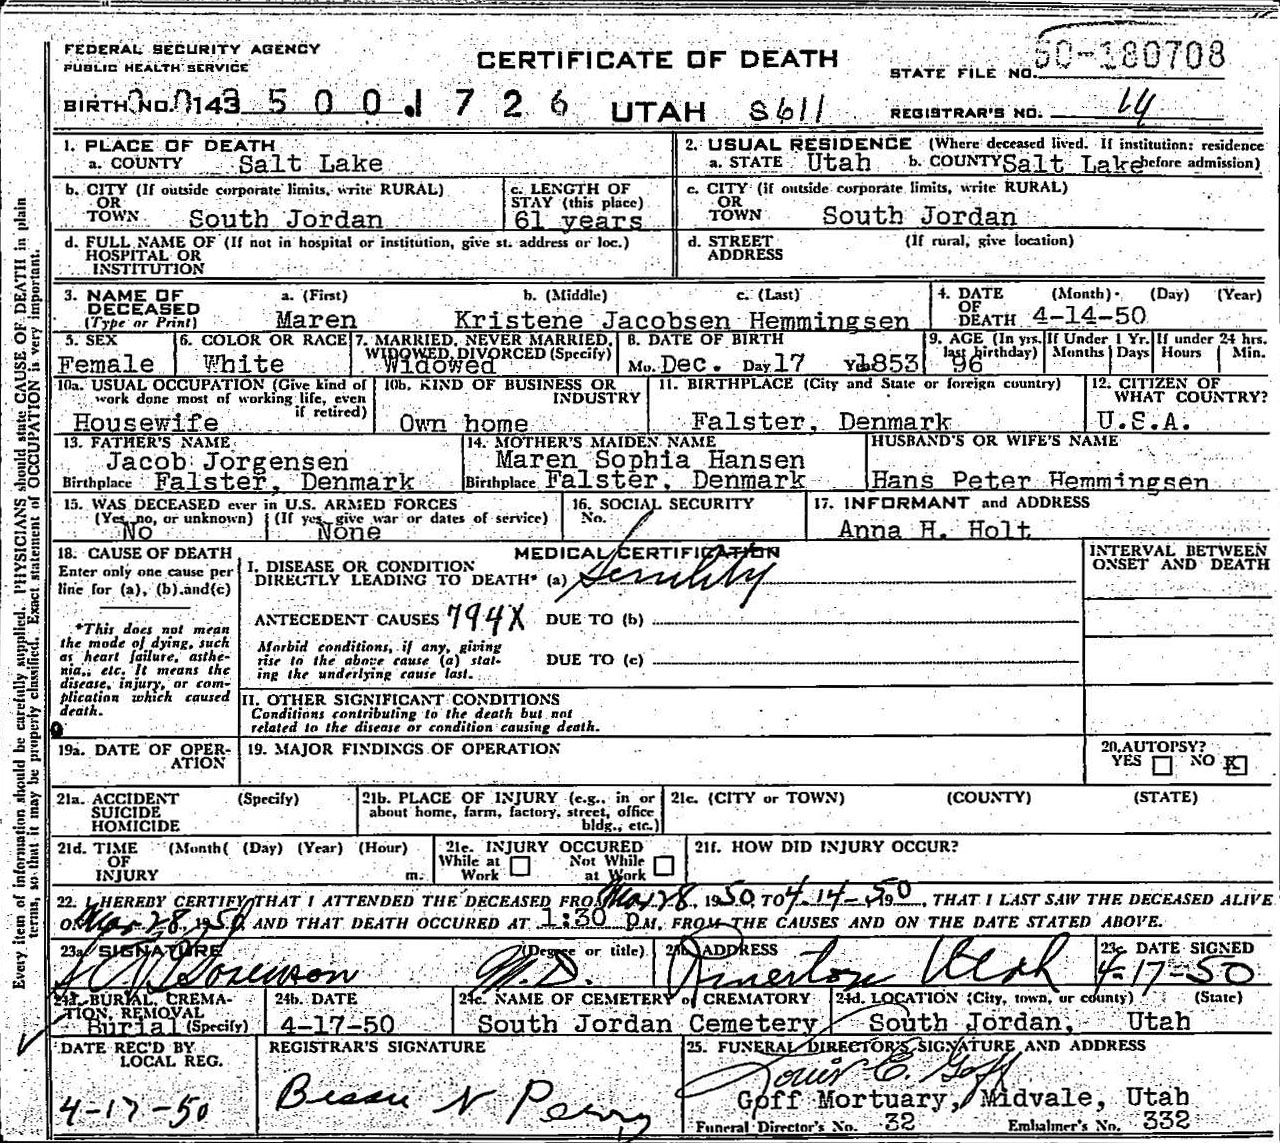 FEDERAL SECURITY AGENCY
PUBLIC HEALTH SERVICE
CERTIFICATE OF DEATH
STATE FILE NO. 50-180708
BIRTH NO. 0143 5 0 0 1 7 2 6 UTAH S611 REGISTRAR'S NO. 14
1. PLACE OF DEATH
a. COUNTY Salt Lake
2. USUAL RESIDENCE (Where deceased lived. If institution: residence
a. STATE Utah b. COUNTY Salt Lake before admission)
b. CITY (If outside corporate limits, write RURAL)
OR
TOWN South Jordan
c. LENGTH OF
STAY (this place)
61 years
c. CITY (if outside corporate limits, write RURAL)
OR
TOWN South Jordan
d. FULL NAME OF (If not in hospital or institution, give st. address or loc.)
HOSPITAL OR
INSTITUTION
d. STREET (If rural, give location)
ADDRESS
3. NAME OF DECEASED a. (First) b. (Middle) c. (Last)
(Type or Print) Maren Kristene Jacobsen Hemmingsen
4. DATE (Month) (Day) (Year)
OF
DEATH 4-14-50
5. SEX
Female
6. COLOR OR RACE
White
7. MARRIED, NEVER MARRIED,
WIDOWED, DIVORCED (Specify)
Widowed
8. DATE OF BIRTH
Mo. Dec. Day 17 Yr. 1853
9. AGE (In yrs. last birthday)
96
If Under 1 Yr.
Months Days
If under 24 hrs.
Hours Min.
10a. USUAL OCCUPATION (Give kind of
work done most of working life, even
if retired)
Housewife
10b. KIND OF BUSINESS OR
INDUSTRY
Own home
11. BIRTHPLACE (City and State or foreign country)
Falster, Denmark
12. CITIZEN OF
WHAT COUNTRY?
U.S.A.
13. FATHER'S NAME
Jacob Jorgensen
Birthplace Falster, Denmark
14. MOTHER'S MAIDEN NAME
Maren Sophia Hansen
Birthplace Falster, Denmark
HUSBAND'S OR WIFE'S NAME
Hans Peter Hemmingsen
15. WAS DECEASED ever in U.S. ARMED FORCES
(Yes, no, or unknown) (If yes, give war or dates of service)
No None
16. SOCIAL SECURITY
No.
17. INFORMANT and ADDRESS
Anna H. Holt
18. CAUSE OF DEATH
Enter only one cause per
line for (a), (b).and(c)
*This does not mean
the mode of dying, such
as heart failure, asthe-
nia,, etc. It means the
disease, injury, or com-
plication which caused
death.
MEDICAL CERTIFICATION
I. DISEASE OR CONDITION
DIRECTLY LEADING TO DEATH* (a) Senility
ANTECEDENT CAUSES 794X DUE TO (b)
Morbid conditions, if any, giving
rise to the above cause (a) stat-
ing the underlying cause last.
DUE TO (c)
II. OTHER SIGNIFICANT CONDITIONS
Conditions contributing to the death but not
related to the disease or condition causing death.
INTERVAL BETWEEN
ONSET AND DEATH
19a. DATE OF OPER-
ATION
19. MAJOR FINDINGS OF OPERATION
20. AUTOPSY?
YES NO X
21a. ACCIDENT (Specify)
SUICIDE
HOMICIDE
21b. PLACE OF INJURY (e.g., in or
about home, farm, factory, street, office
bldg., etc.)
21c. (CITY or TOWN) (COUNTY) (STATE)
21d. TIME (Month( (Day) (Year) (Hour)
OF
INJURY m.
21e. INJURY OCCURED
While at Work Not While at Work
21f. HOW DID INJURY OCCUR?
22. I HEREBY CERTIFY THAT I ATTENDED THE DECEASED FROM Mar 28, 1950, TO 4-14-, 1950, THAT I LAST SAW THE DECEASED ALIVE
ON Mar 28, 1950 AND THAT DEATH OCCURED AT 1:30 p M. FROM THE CAUSES AND ON THE DATE STATED ABOVE.
23a SIGNATURE (Degree or title)
Sorenson M.D.
23b ADDRESS
Riverton Utah
23c DATE SIGNED
4-17-50
24a. BURIAL, CREMA-
TION, REMOVAL
Burial (Specify)
24b. DATE
4-17-50
24c. NAME OF CEMETERY or CREMATORY
South Jordan Cemetery
24d. LOCATION (City, town, or county) (State)
South Jordan, Utah
DATE REC'D BY
LOCAL REG.
4-17-50
REGISTRAR'S SIGNATURE
Bessie N Perry
25. FUNERAL DIRECTOR'S SIGNATURE AND ADDRESS
Louis C. Goff
Goff Mortuary, Midvale, Utah
Funeral Director's No. 32 Embalmer's No. 332
Every item of information should be carefully supplied. PHYSICIANS should state CAUSE OF DEATH in plain
terms, so that it may be properly classified. Exact statement of OCCUPATION is very important.